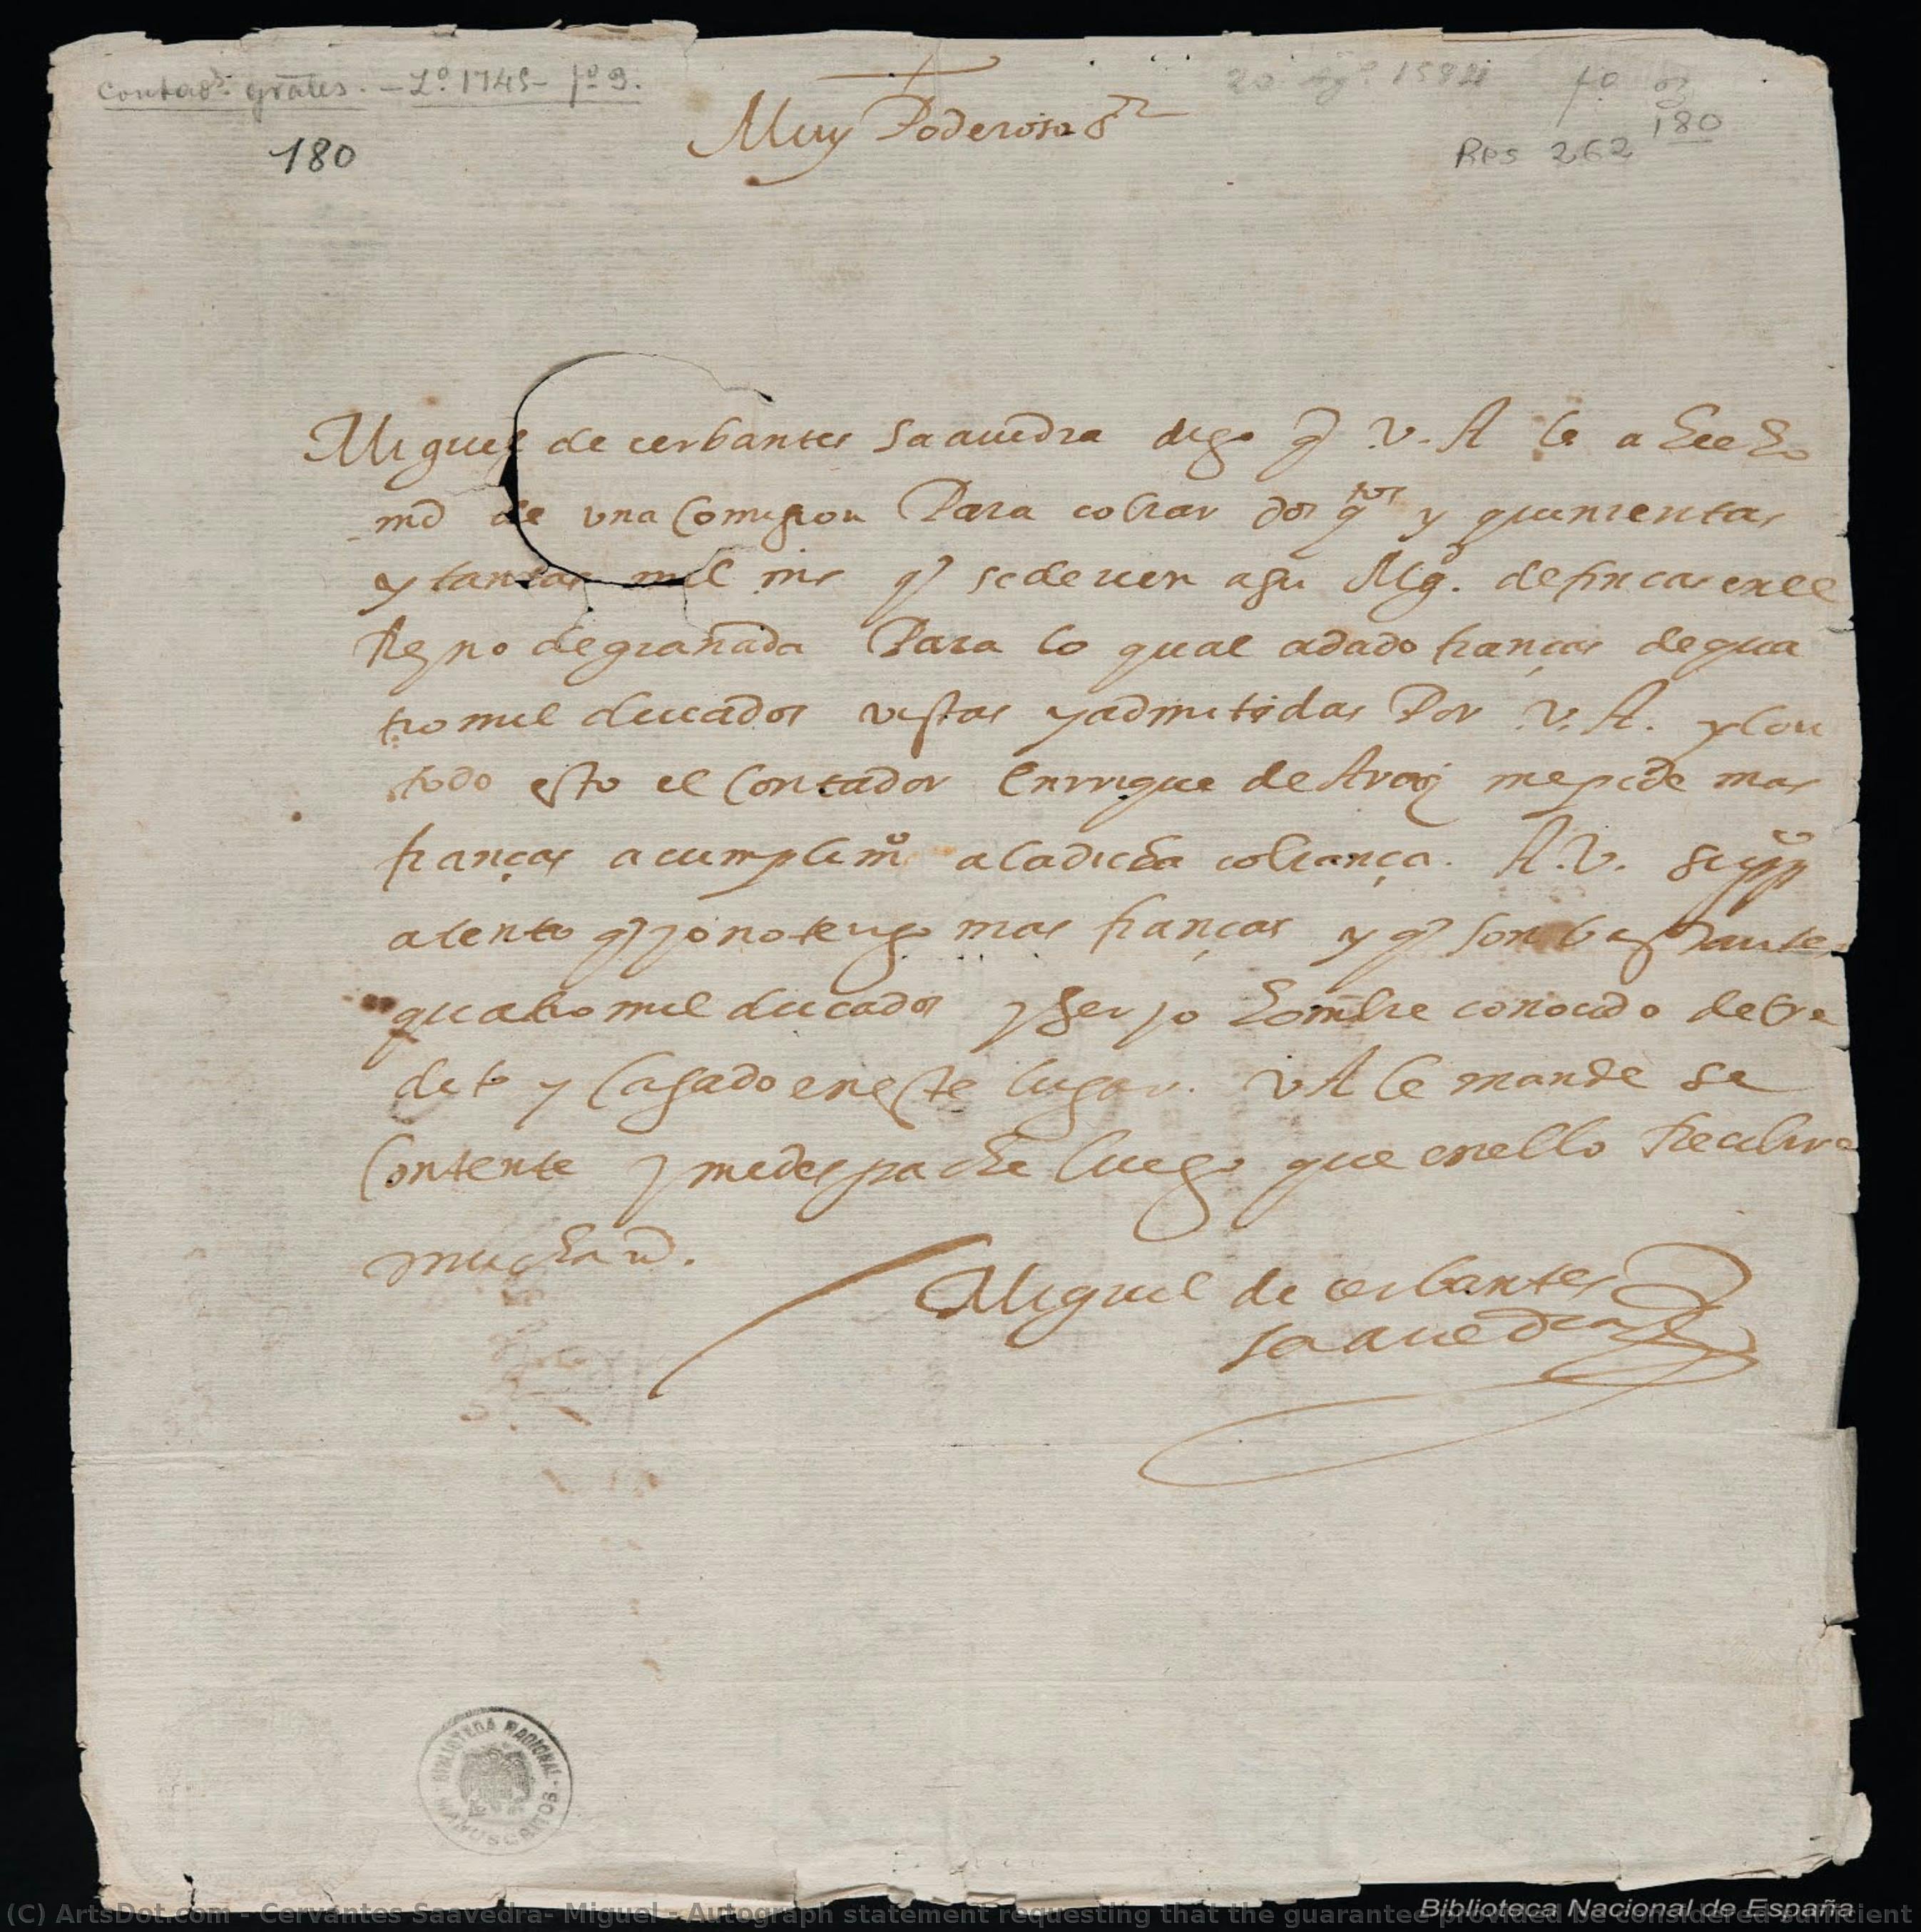 Contad.ˢ grãles. - L.º 1745 - f.º 9.
20 Ag.º 1594
fº
180
180
Res 262
Muy Poderoso Sʳ
Miguel de cerbantes Saauedra digo q̃ V. A. le a hecho
md de vna comision Para cobrar dos qᵗᵒˢ y quinientas
y tantas mil mrs q̃ se deuen a su Mg. de fincas en el
Reyno de granada Para lo qual a dado fianças de qua
tro mil ducados vistas y admitidas Por V. A. y con
todo esto el contador Enrrique de Araiz me pide mas
fianças a cumplimᵒ a la dicha cobrança. A. V. A. suppᶜᵒ
atento q̃ yo no tengo mas fianças y q̃ son bastantes
quatro mil ducados y ser yo hombre conocido de cre
dito y casado en este lugar. V A le mande se
contente y me despache luego que en ello Recibire
mucha md.
Miguel de cerbantes
saauedra
BIBLIOTECA NACIONAL
MANUSCRITOS
Biblioteca Nacional de España
(C) ArtsDot.com - Cervantes Saavedra- Miguel - Autograph statement requesting that the guarantee provided be considered sufficient